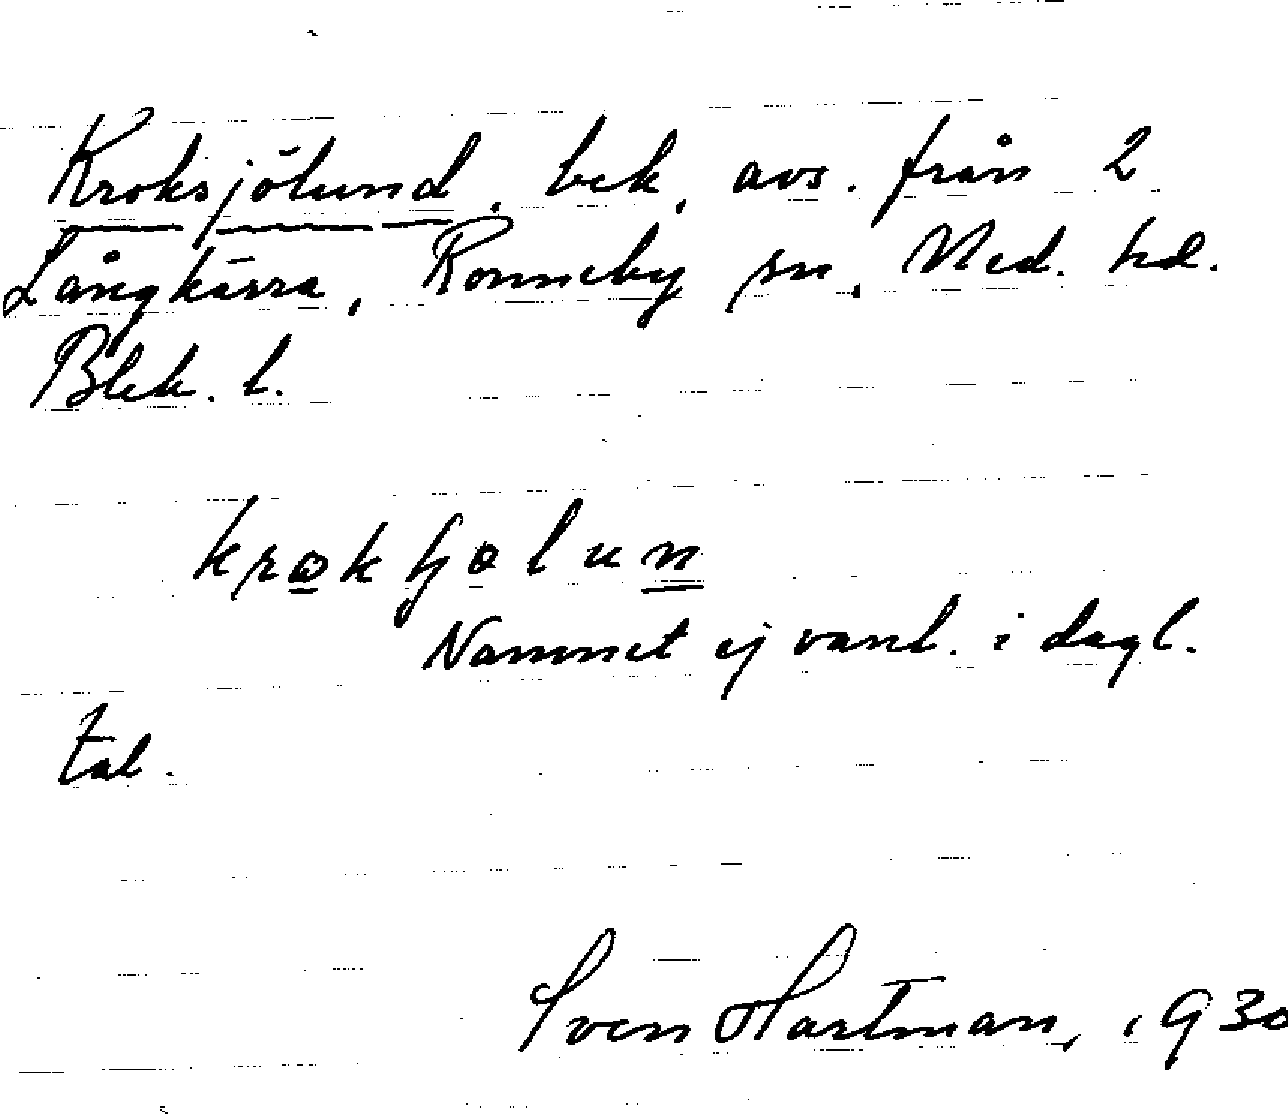 Kroksjölund, bek, avs. från 2
Långkärra, Ronneby sn, Med. hd.
Blek. l.
Namnet ej vanl. i dagl.
tal.
Sven Hartman, 1930